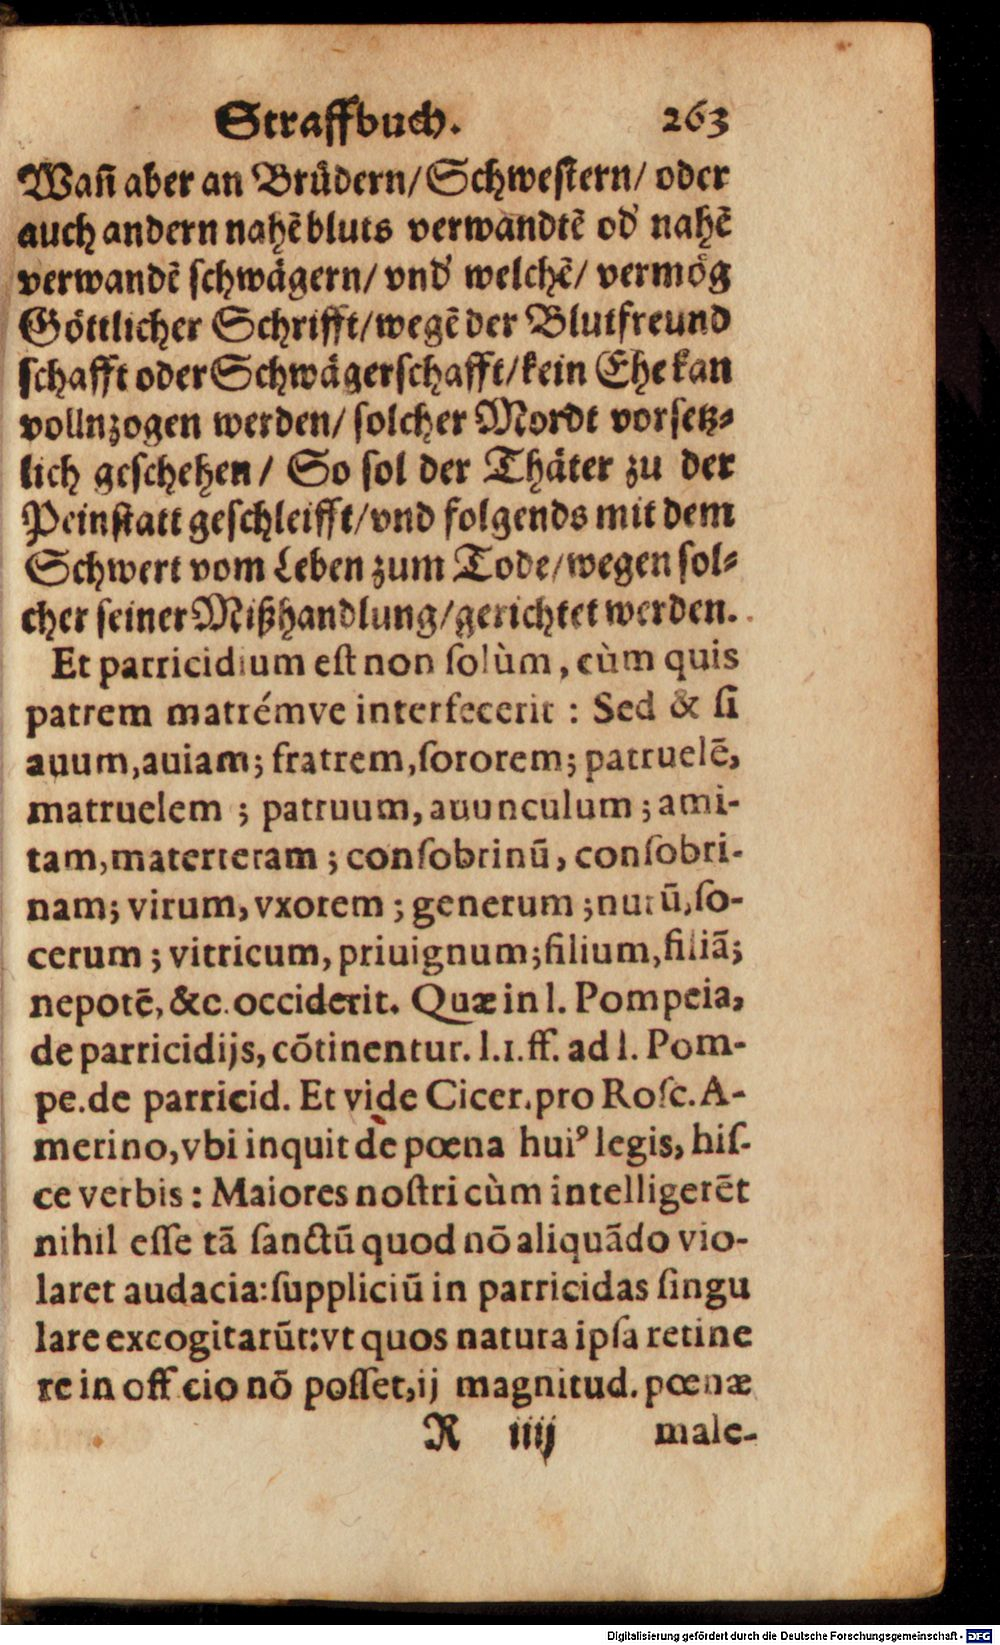 Straffbuch. 263
Wañ aber an Brüdern/ Schwestern/ oder
auch andern nahẽ bluts verwandtẽ od' nahẽ
verwandẽ schwägern/ vnd' welchẽ/ vermög
Göttlicher Schrifft/ wegẽ der Blutfreund
schafft oder Schwägerschafft/ kein Ehe kan
vollnzogen werden/ solcher Mordt vorsetz-
lich geschehen/ So sol der Thäter zu der
Peinstatt geschleifft/ vnd folgends mit dem
Schwert vom Leben zum Tode/ wegen sol-
cher seiner Mißhandlung/ gerichtet werden.
Et parricidium est non solùm, cùm quis
patrem matrémve interfecerit : Sed & si
auum, auiam; fratrem, sororem; patruelẽ,
matruelem ; patruum, auunculum ; ami-
tam, materteram ; consobrinũ, consobri-
nam; virum, vxorem ; generum ; nurũ, so-
cerum ; vitricum, priuignum; filium, filiã;
nepotẽ, &c. occiderit. Quæ in l. Pompeia,
de parricidijs, cõtinentur. l.1.ff. ad l. Pom-
pe. de parricid. Et vide Cicer. pro Rosc. A-
merino, vbi inquit de pœna huiꝰ legis, his-
ce verbis : Maiores nostri cùm intelligerẽt
nihil esse tã sanctũ quod nõ aliquãdo vio-
laret audacia: suppliciũ in parricidas singu
lare excogitarũt: vt quos natura ipsa retine
re in officio nõ posset, ij magnitud. pœnæ
R iiij male-
Digitalisierung gefördert durch die Deutsche Forschungsgemeinschaft - DFG